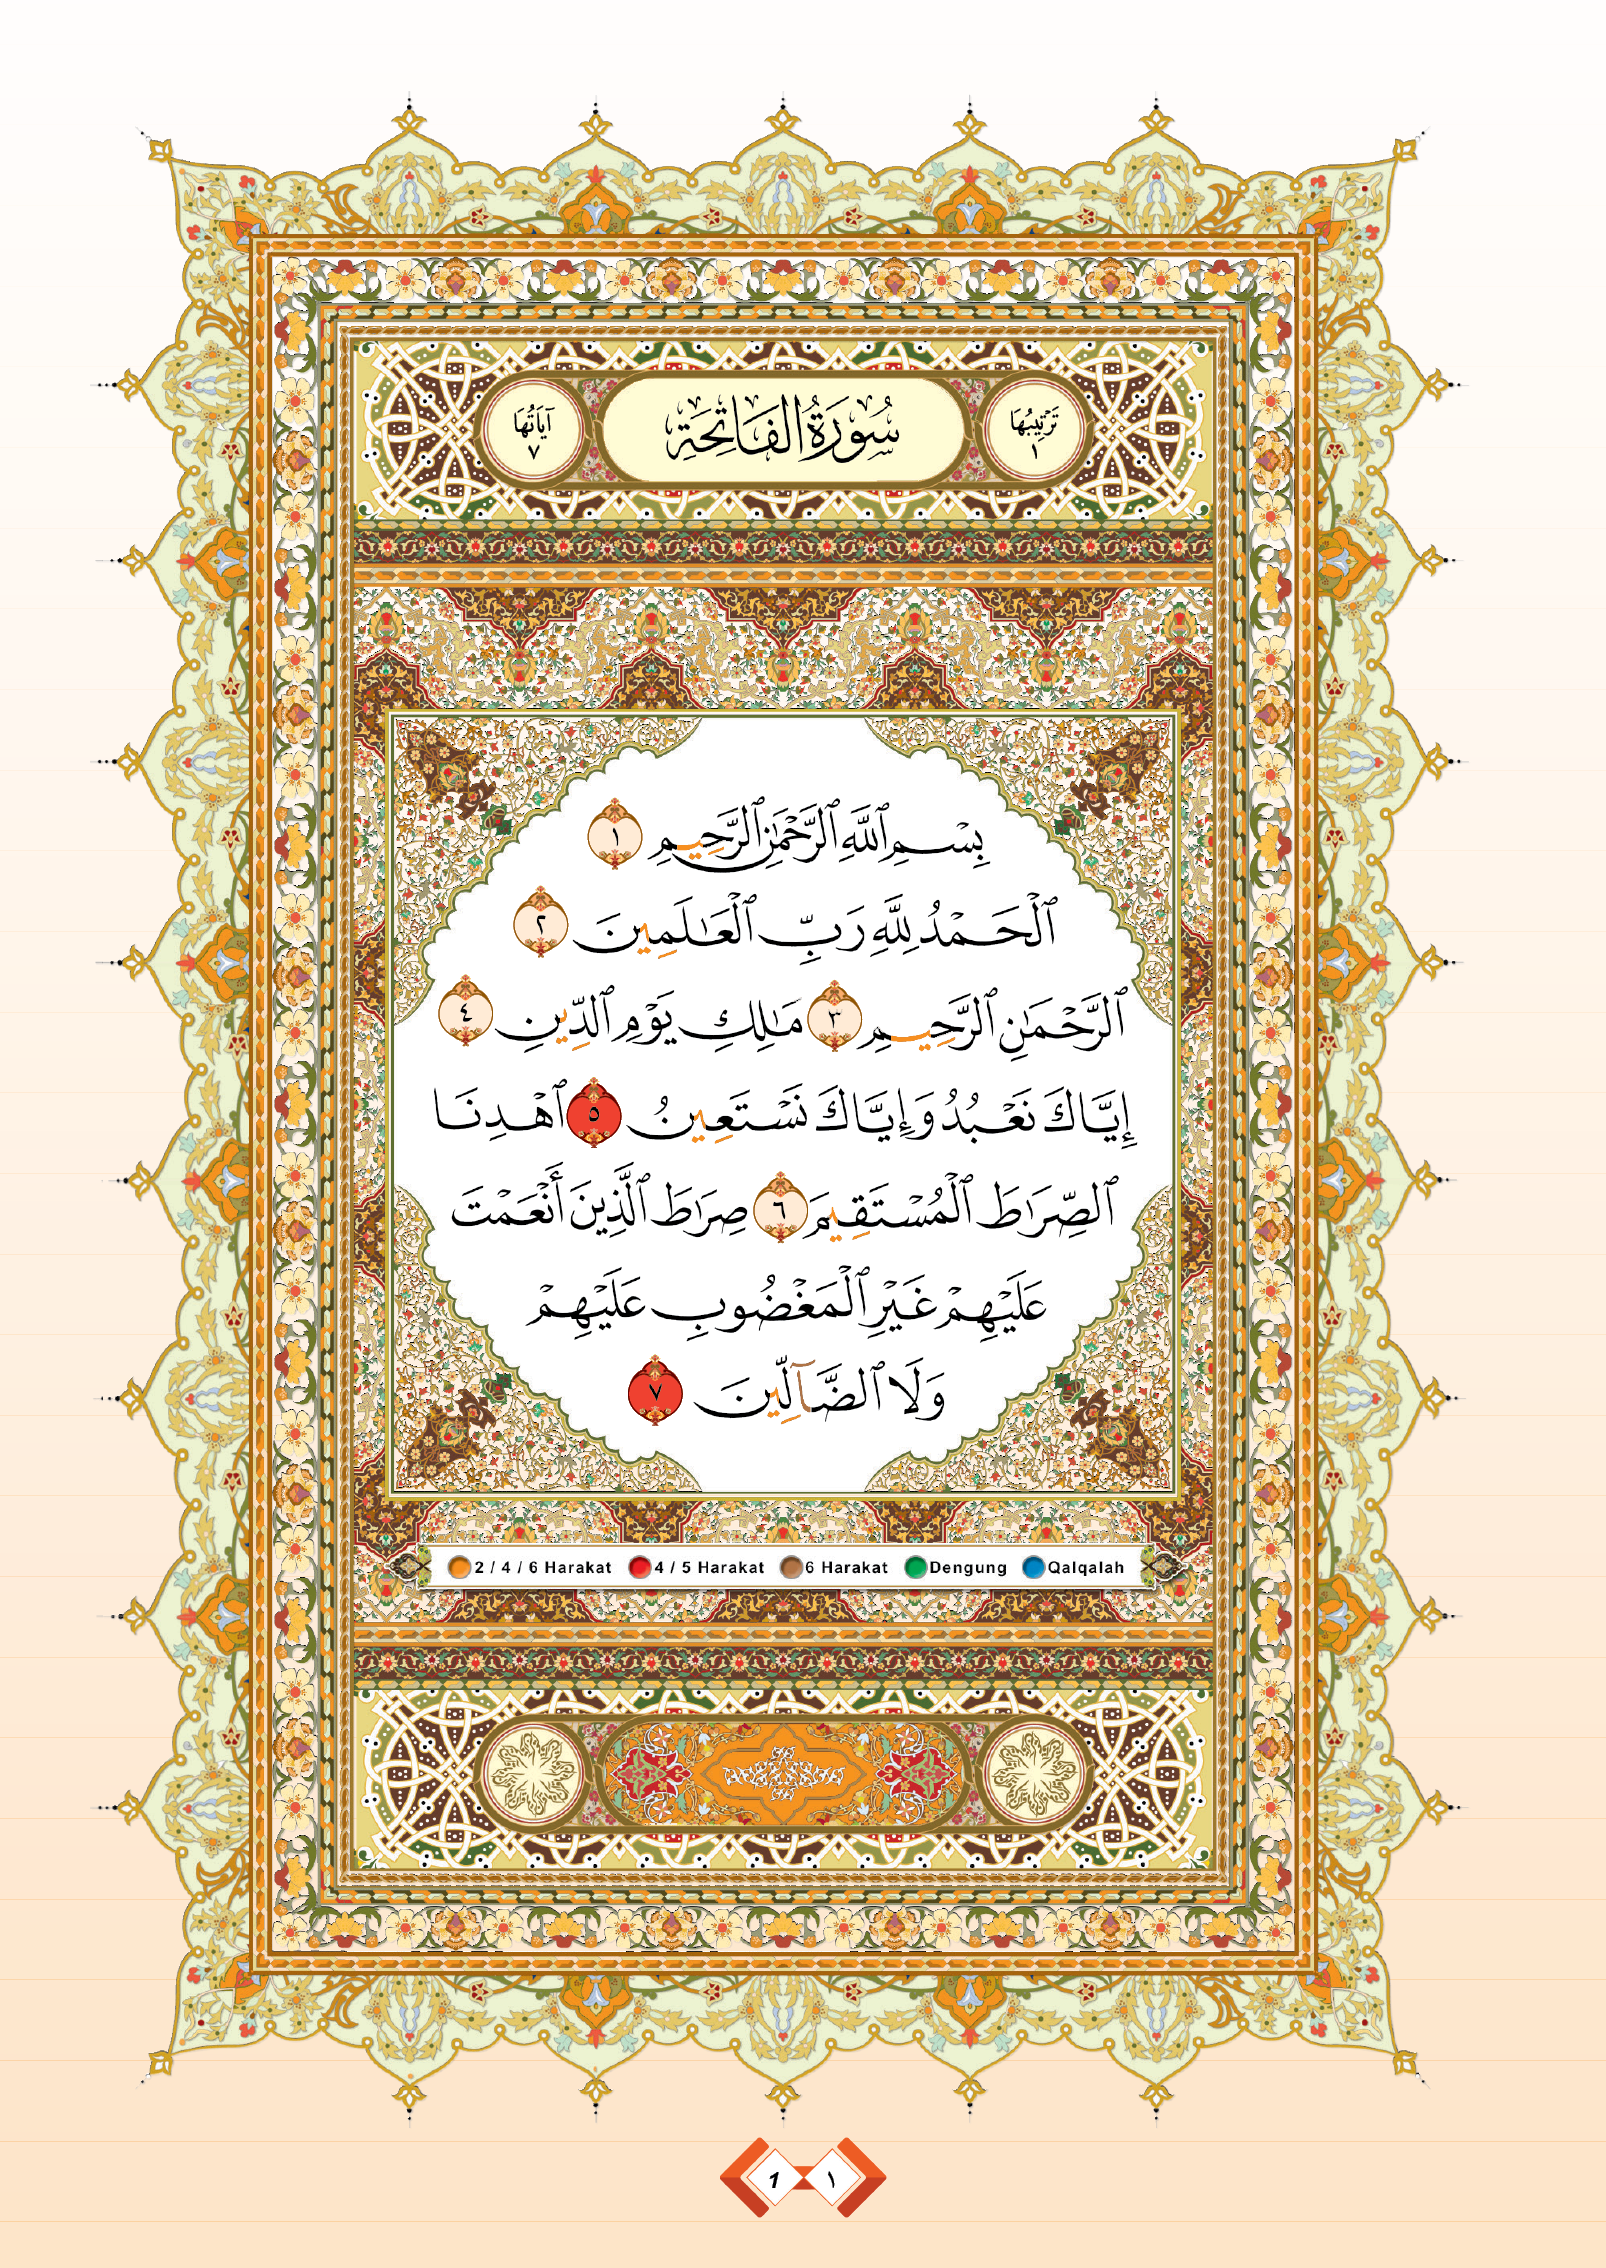 تَرْتِيبُهَا ١
سُورَةُ الْفَاتِحَةِ
آيَاتُهَا ٧
بِسْمِ ٱللَّهِ ٱلرَّحْمَٰنِ ٱلرَّحِيمِ ١
ٱلْحَمْدُ لِلَّهِ رَبِّ ٱلْعَـٰلَمِينَ ٢
ٱلرَّحْمَـٰنِ ٱلرَّحِيمِ ٣ مَـٰلِكِ يَوْمِ ٱلدِّينِ ٤
إِيَّاكَ نَعْبُدُ وَإِيَّاكَ نَسْتَعِينُ ٥ ٱهْدِنَا
ٱلصِّرَٰطَ ٱلْمُسْتَقِيمَ ٦ صِرَٰطَ ٱلَّذِينَ أَنْعَمْتَ
عَلَيْهِمْ غَيْرِ ٱلْمَغْضُوبِ عَلَيْهِمْ
وَلَا ٱلضَّآلِّينَ ٧
2 / 4 / 6 Harakat 4 / 5 Harakat 6 Harakat Dengung Qalqalah
1 ١